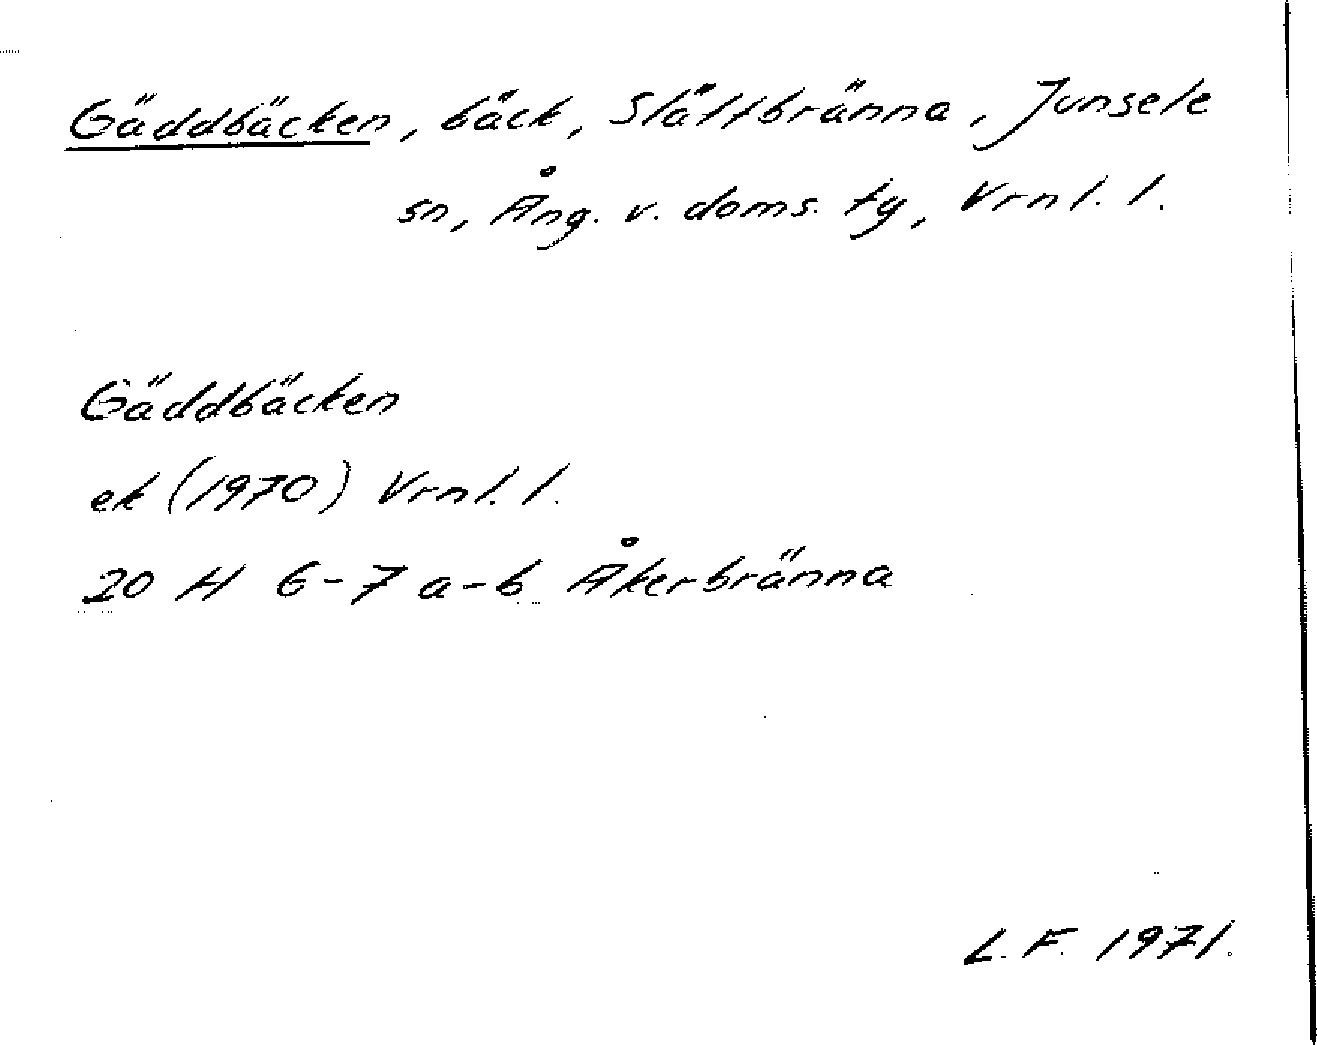 Gäddbäcken, bäck, Slåttbränna, Junsele
sn, Ång. v. doms. tg, Vrnl. l.
Gäddbäcken
ek (1970) Vrnl. l.
20 H 6-7 a-b Åkerbränna
L. F. 1971.